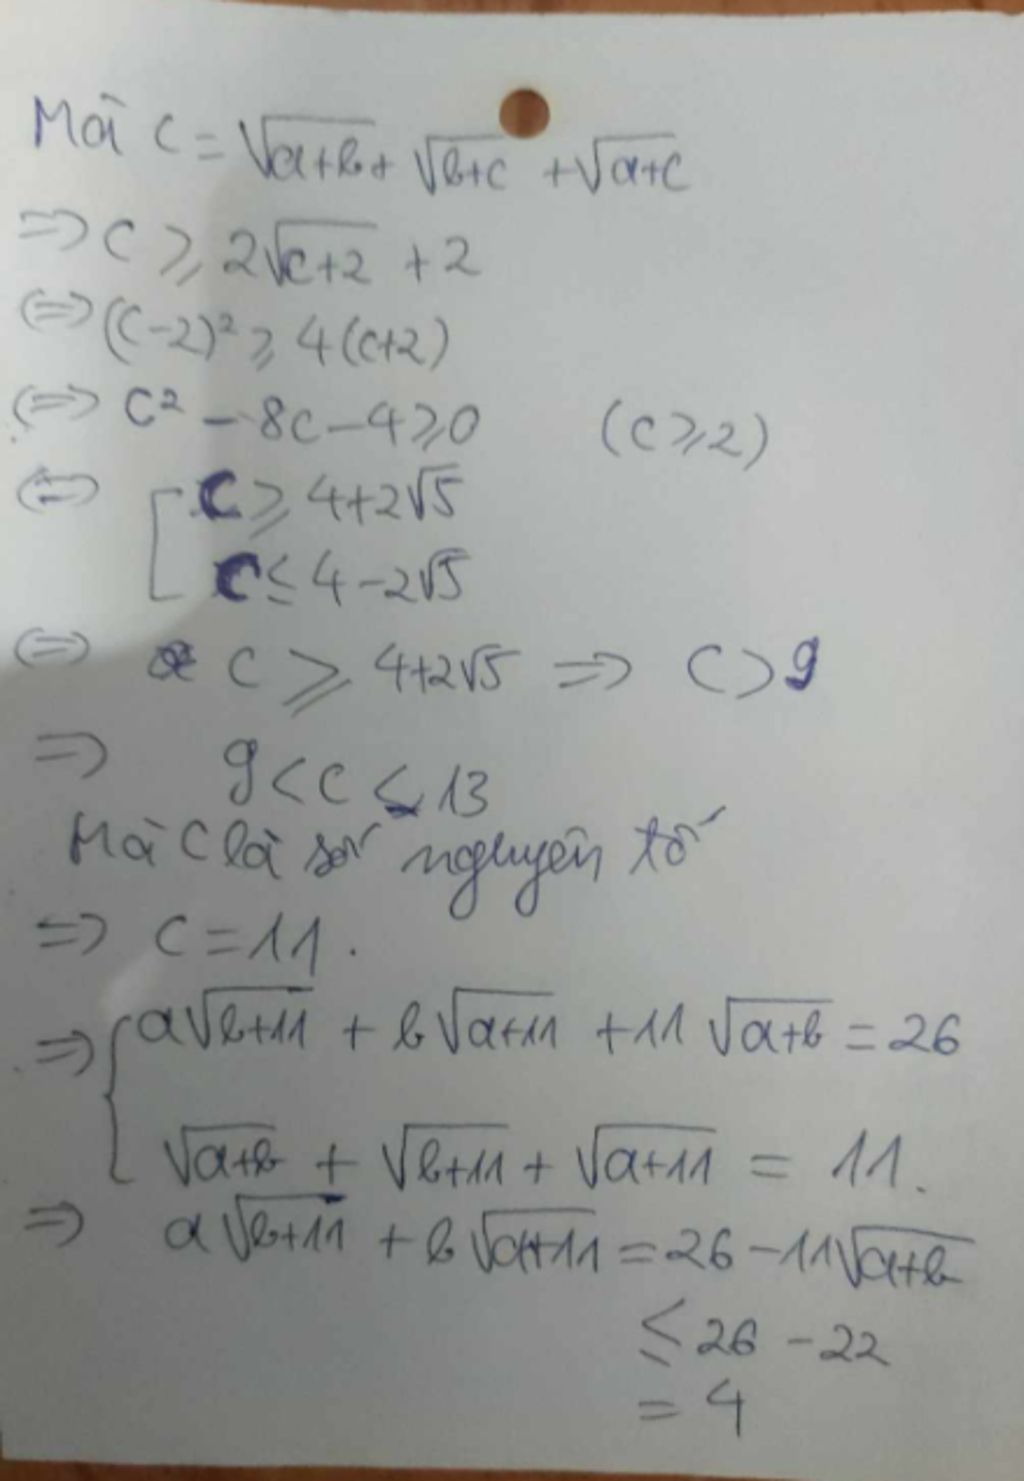 Mà c = √(a+b) + √(b+c) + √(a+c)
⇒ c ⩾ 2√(c+2) + 2
⇔ (c-2)² ⩾ 4(c+2)
⇔ c² - 8c - 4 ⩾ 0 (c ⩾ 2)
⇔ [ c ⩾ 4+2√5
c ≤ 4-2√5
⇔ c ⩾ 4+2√5 ⇒ c > 9
⇒ 9 < c ≤ 13
Mà c là số nguyên tố
⇒ c = 11.
⇒ { a√(b+11) + b√(a+11) + 11√(a+b) = 26
√(a+b) + √(b+11) + √(a+11) = 11.
⇒ a√(b+11) + b√(a+11) = 26 - 11√(a+b)
≤ 26 - 22
= 4